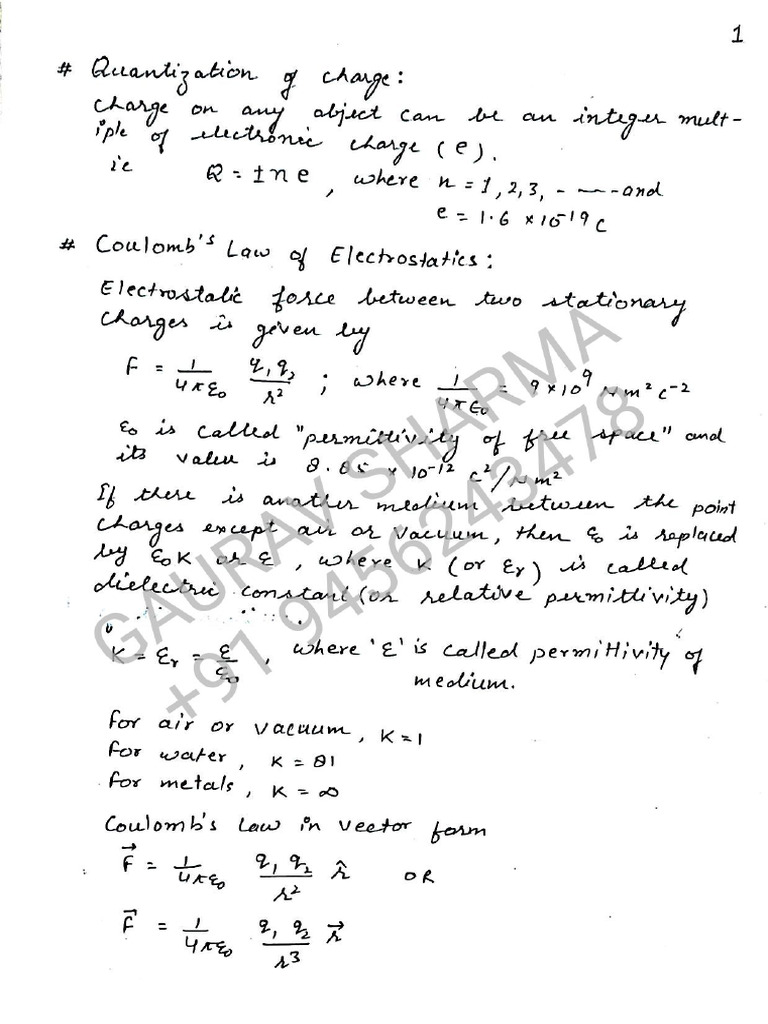 1
# Quantization of charge:
Charge on any object can be an integer mult-
iple of electronic charge (e).
ie Q = ±ne, where n = 1, 2, 3, - --- and
e = 1.6 × 10⁻¹⁹ C
# Coulomb's Law of Electrostatics:
Electrostatic force between two stationary
charges is given by
F = 1/4πε₀ q₁q₂/r² ; where 1/4πε₀ = 9×10⁹ Nm²C⁻²
ε₀ is called "permittivity of free space" and
its value is 8.85 × 10⁻¹² C²/Nm²
If there is another medium between the point
charges except air or vacuum, then ε₀ is replaced
by ε₀K or ε, where K (or εᵣ) is called
dielectric constant (or relative permittivity)
K = εᵣ = ε/ε₀, where 'ε' is called permittivity of
medium.
for air or vacuum, K = 1
For water, K = 81
for metals, K = ∞
Coulomb's Law in vector form
F⃗ = 1/4πε₀ q₁q₂/r² r̂ OR
F⃗ = 1/4πε₀ q₁q₂/r³ r⃗
GAURAV SHARMA
+91 9456243478